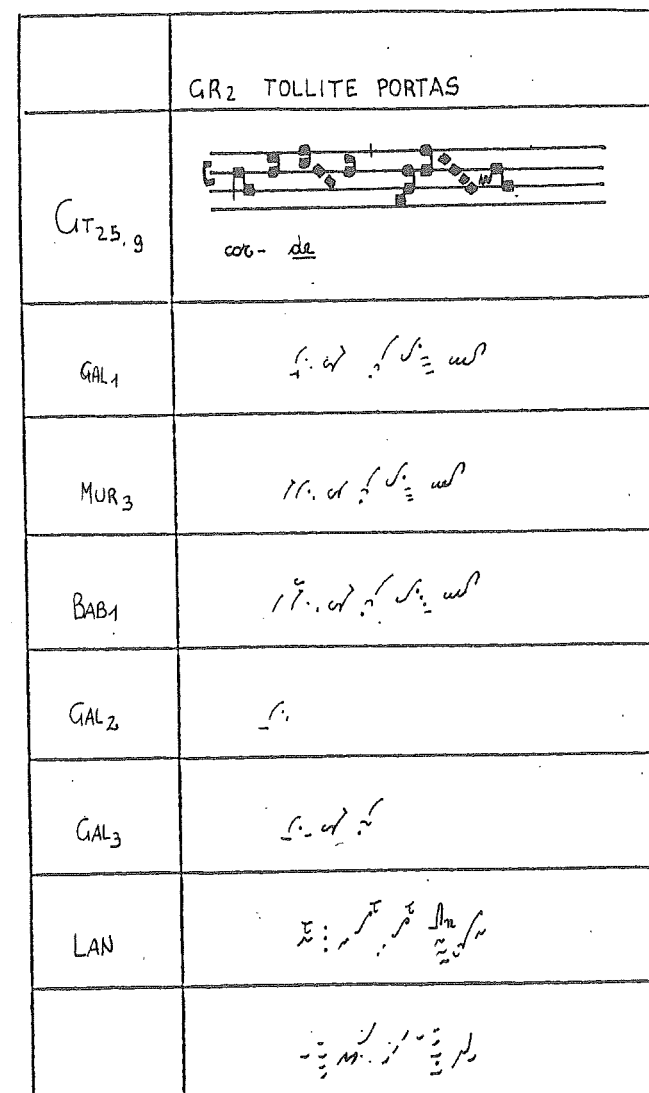 GR2 TOLLITE PORTAS
GT25,9
cor- de
GAL1
MUR3
BAB1
GAL2
GAL3
LAN